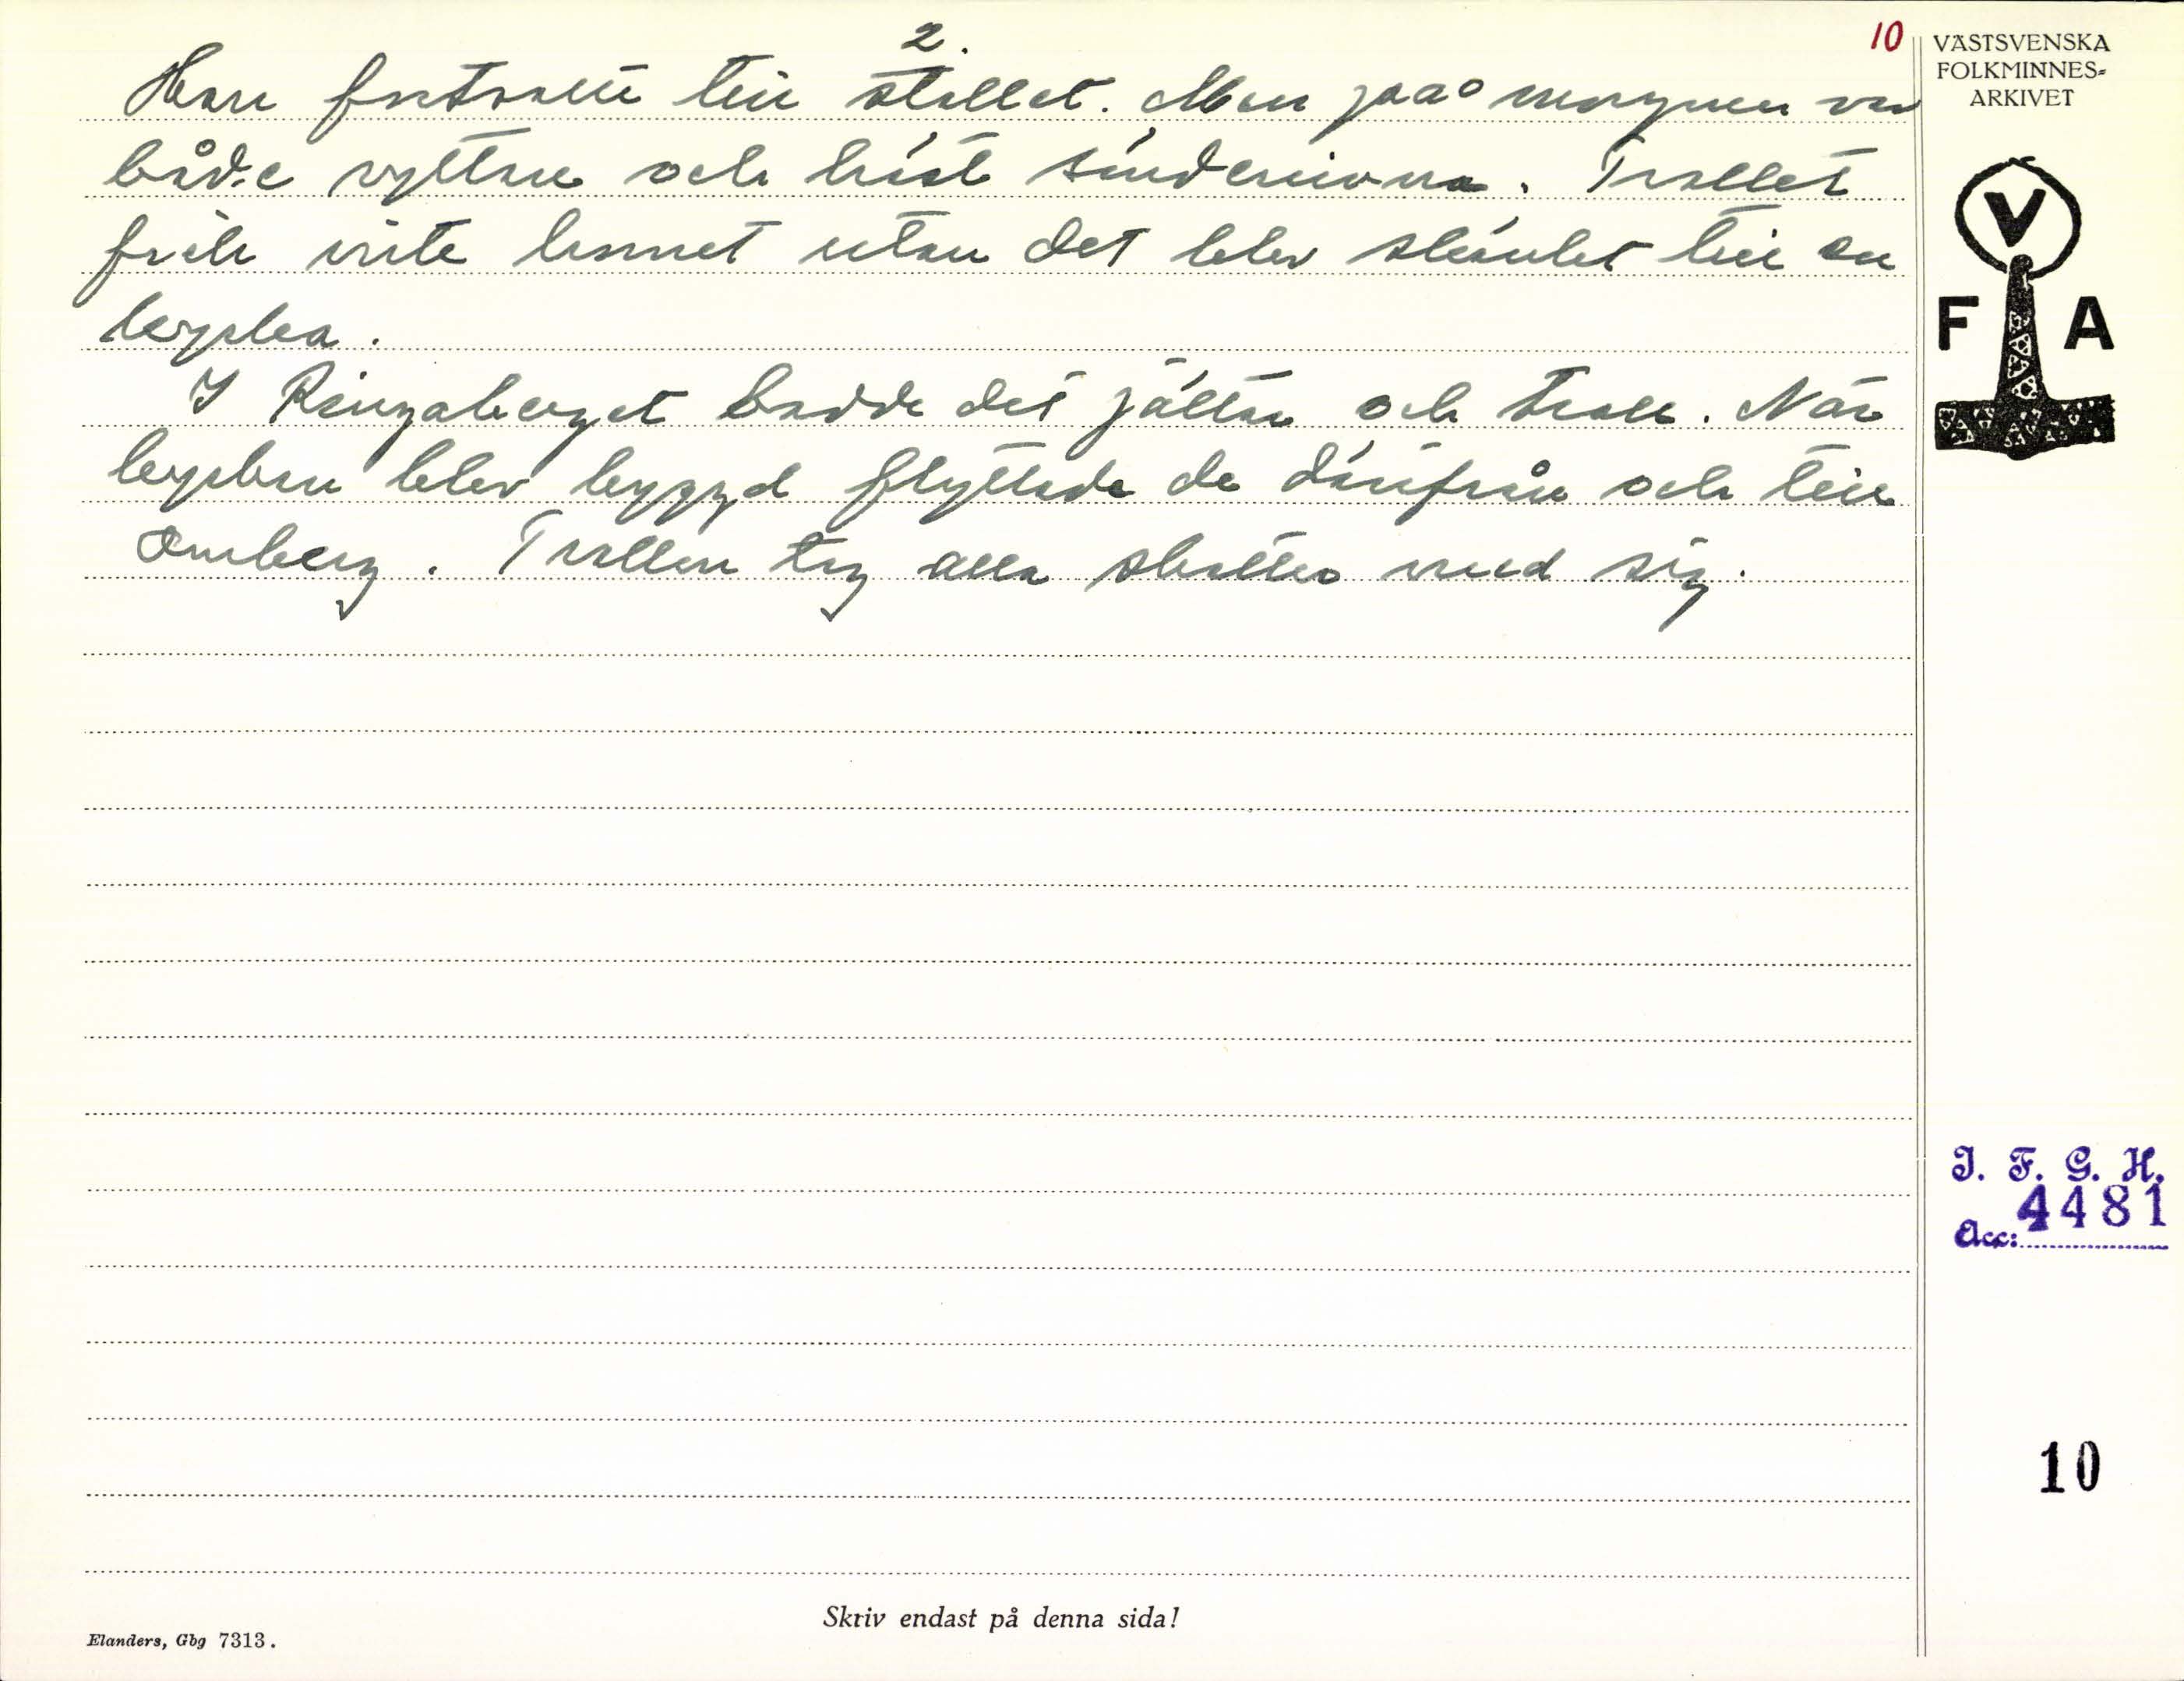 2.
10
Han fortsatte till stallet. Men på morgonen var
både ryttare och häst sönderrivna. Trollet
fick inte hornet utan det blev skänkt till en
kyrka.
I Ringaberget bodde det jättar och troll. När
kyrkan blev byggd flyttade de därifrån och till
Omberg. Trollen tog alla skatter med sig.
VÄSTSVENSKA
FOLKMINNES-
ARKIVET
V
F A
I. F. G. H.
Acc: 4481
10
Skriv endast på denna sida!
Elanders, Gbg 7313.